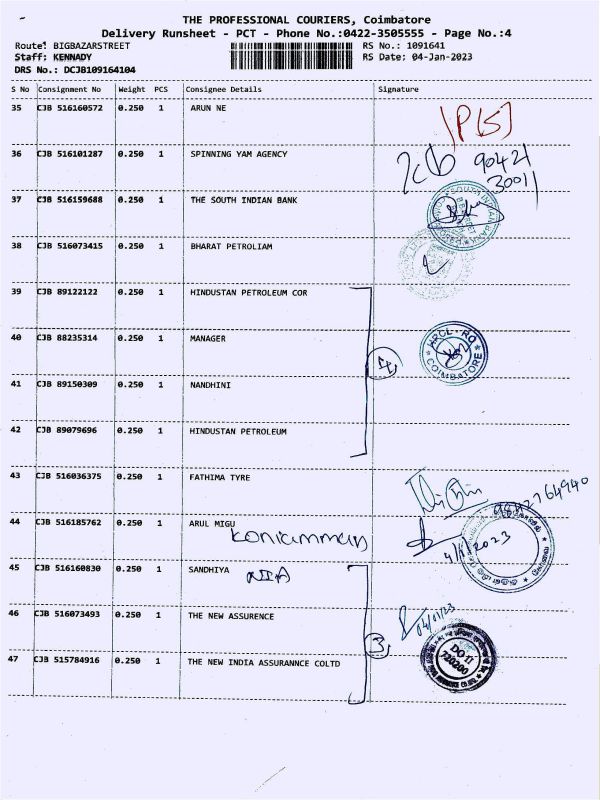 THE PROFESSIONAL COURIERS, Coimbatore
Delivery Runsheet - PCT - Phone No.:0422-3505555 - Page No.:4
Route: BIGBAZARSTREET RS No.: 1091641
Staff: KENNADY RS Date: 04-Jan-2023
DRS No.: DCJB109164104
S No Consignment No Weight PCS Consignee Details Signature
35 CJB 516160572 0.250 1 ARUN NE
36 CJB 516101287 0.250 1 SPINNING YAM AGENCY 90421
30011
37 CJB 516159688 0.250 1 THE SOUTH INDIAN BANK
38 CJB 516073415 0.250 1 BHARAT PETROLIAM
39 CJB 89122122 0.250 1 HINDUSTAN PETROLEUM COR
40 CJB 88235314 0.250 1 MANAGER
HPCL-RO
COIMBATORE
41 CJB 89150309 0.250 1 NANDHINI
42 CJB 89079696 0.250 1 HINDUSTAN PETROLEUM
43 CJB 516036375 0.250 1 FATHIMA TYRE
44 CJB 516185762 0.250 1 ARUL MIGU
koniamman
45 CJB 516160830 0.250 1 SANDHIYA NIA
46 CJB 516073493 0.250 1 THE NEW ASSURENCE 04/01/23
47 CJB 515784916 0.250 1 THE NEW INDIA ASSURANNCE COLTD 3
DO II
720200